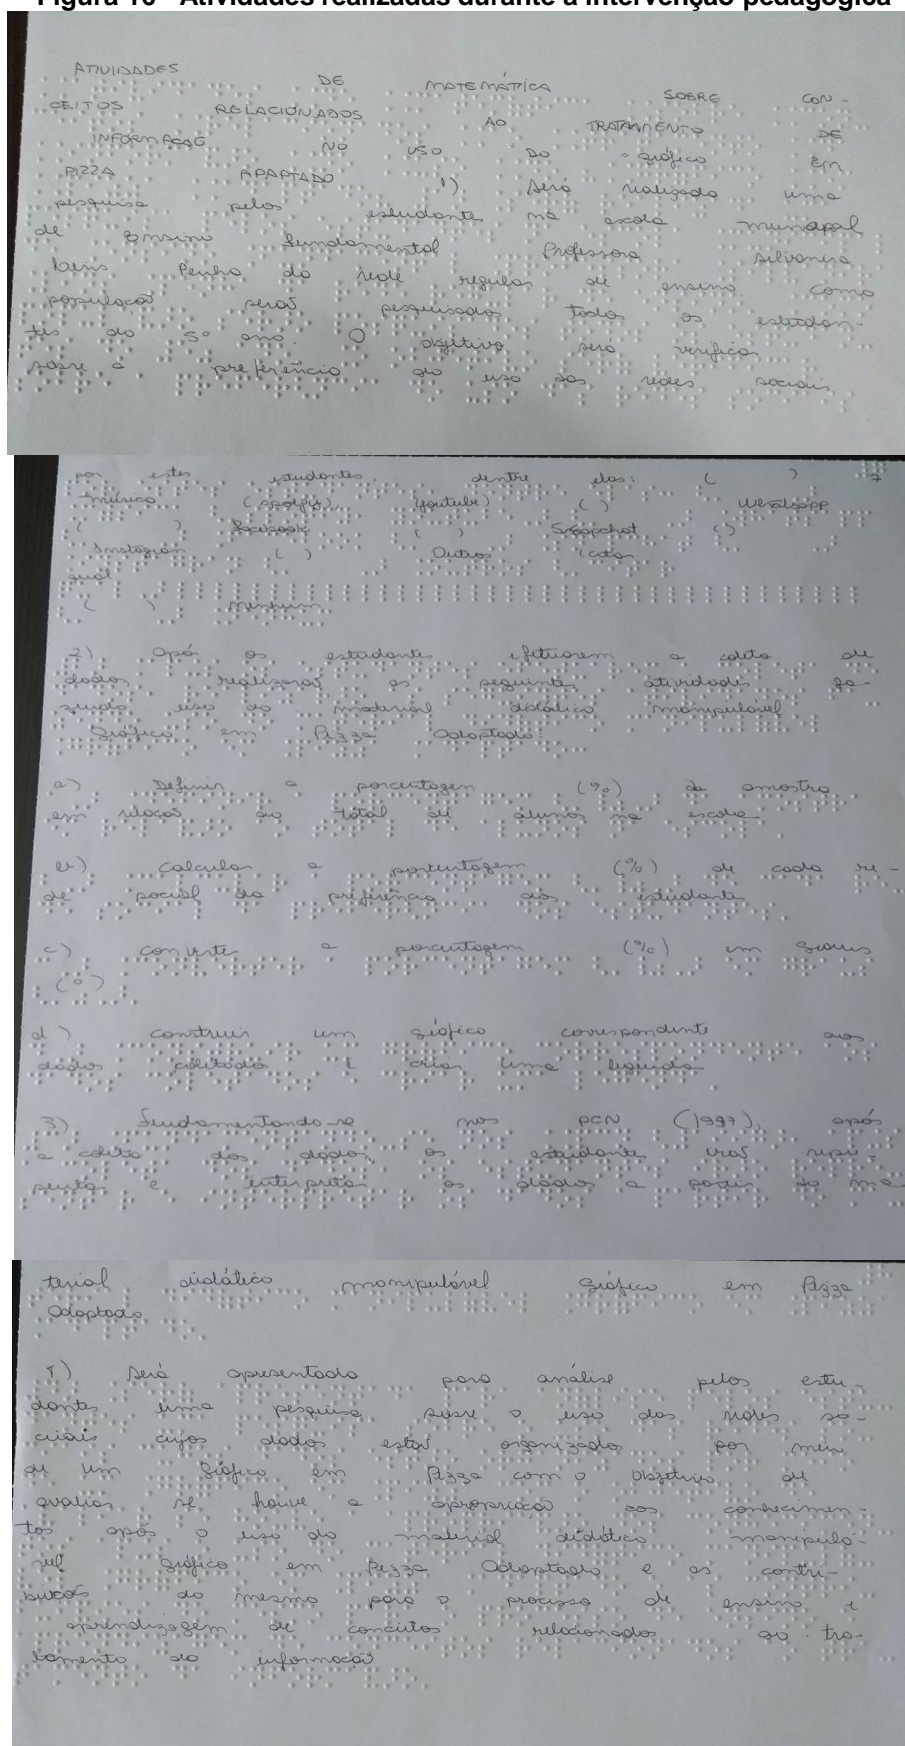 Figura 10 - Atividades realizadas durante a intervenção pedagógica
ATIVIDADES DE MATEMÁTICA SOBRE CON-
CEITOS RELACIONADOS AO TRATAMENTO DE
INFORMAÇÃO NO USO DO "gráfico em
PIZZA ADAPTADO 1) Será realizada uma
pesquisa pelos estudantes na escola municipal
de Ensino Fundamental Professora Silvanira
Lins Penha da rede regular de ensino. Como
população serão pesquisados todos os estudan-
tes do 5º ano. O objetivo será verificar
sobre a preferência do uso das redes sociais
por estes estudantes, dentre elas: ( ) 7
música (spotify, youtube) ( ) Whatsapp
( ) Facebook ( ) Snapchat ( )
Instagran ( ) Outros (citar
qual
( ) Nenhum
2) Após os estudantes efetuarem a coleta de
dados realizarão as seguintes atividades fa-
zendo uso do material didático manipulável
Gráfico em Pizza Adaptado:
a) Definir a porcentagem (%) da amostra
em relação ao total de alunos na escola.
b) calcular a porcentagem (%) de cada re-
de social da preferência dos estudantes.
c) converter a porcentagem (%) em graus
(º).
d) construir um gráfico correspondente aos
dados coletados e criar uma legenda.
3) Fundamentando-se nos PCN (1997), após
a coleta dos dados, os estudantes irão repre-
sentar e interpretar os dados a partir do ma
terial didático manipulável Gráfico em Pizza
Adaptado.
4) Será apresentado para análise pelos estu-
dantes uma pesquisa sobre o uso das redes so-
ciais cujos dados estão organizados por meio
de um Gráfico em Pizza com o objetivo de
avaliar se houve a apropriação dos conhecimen-
tos após o uso do material didático manipulá-
vel gráfico em Pizza Adaptado e as contri-
buições do mesmo para o processo de ensino e
aprendizagem de conceitos relacionados ao tra-
tamento da informação